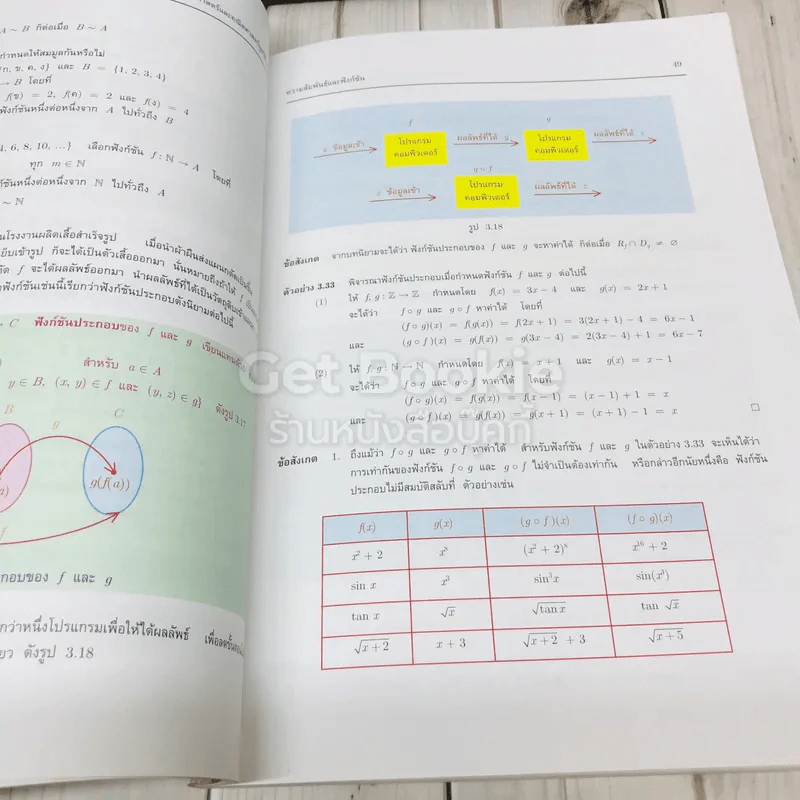 A ~ B ก็ต่อเมื่อ B ~ A
กำหนดให้สมมูลกันหรือไม่
ก, ข, ค, ง} และ B = {1, 2, 3, 4}
→ B โดยที่
f(ข) = 2, f(ค) = 2 และ f(ง) = 4
ฟังก์ชันหนึ่งต่อหนึ่งจาก A ไปทั่วถึง B
4, 6, 8, 10, ...} เลือกฟังก์ชัน f : ℕ → A โดยที่
ทุก m ∈ ℕ
ก์ชันหนึ่งต่อหนึ่งจาก ℕ ไปทั่วถึง A
~ ℕ
นโรงงานผลิตเสื้อสำเร็จรูป เมื่อนำผ้าผืนส่งแผนกตัดเป็นชิ้น
เย็บเข้ารูป ก็จะได้เป็นตัวเสื้อออกมา นั่นหมายถึงถ้าให้ f
ตัด f จะได้ผลลัพธ์ออกมา นำผลลัพธ์ที่ได้เป็นวัตถุดิบเข้า
ฟังก์ชันเช่นนี้เรียกว่าฟังก์ชันประกอบดังนิยามต่อไปนี้
→ C ฟังก์ชันประกอบของ f และ g เขียนแทนด้วย
สำหรับ a ∈ A
y ∈ B, (x, y) ∈ f และ (y, z) ∈ g} ดังรูป 3.17
B
C
g
a)
g(f(a))
f
กอบของ f และ g
กว่าหนึ่งโปรแกรมเพื่อให้ได้ผลลัพธ์
ยว ดังรูป 3.18
ความสัมพันธ์และฟังก์ชัน
49
f
g
x ข้อมูลเข้า
โปรแกรม
คอมพิวเตอร์
ผลลัพธ์ที่ได้ y
โปรแกรม
คอมพิวเตอร์
ผลลัพธ์ที่ได้ z
g ∘ f
x ข้อมูลเข้า
โปรแกรม
คอมพิวเตอร์
ผลลัพธ์ที่ได้ z
รูป 3.18
ข้อสังเกต จากบทนิยามจะได้ว่า ฟังก์ชันประกอบของ f และ g จะหาค่าได้ ก็ต่อเมื่อ R_f ∩ D_g ≠ ∅
ตัวอย่าง 3.33 พิจารณาฟังก์ชันประกอบเมื่อกำหนดฟังก์ชัน f และ g ต่อไปนี้
(1) ให้ f, g : ℤ → ℤ กำหนดโดย f(x) = 3x − 4 และ g(x) = 2x + 1
จะได้ว่า f ∘ g และ g ∘ f หาค่าได้ โดยที่
(f ∘ g)(x) = f(g(x)) = f(2x + 1) = 3(2x + 1) − 4 = 6x − 1
และ (g ∘ f)(x) = g(f(x)) = g(3x − 4) = 2(3x − 4) + 1 = 6x − 7
(2) ให้ f, g : ℕ → ℕ กำหนดโดย f(x) = x + 1 และ g(x) = x − 1
จะได้ว่า f ∘ g และ g ∘ f หาค่าได้ โดยที่
(f ∘ g)(x) = f(g(x)) = f(x − 1) = (x − 1) + 1 = x
และ (g ∘ f)(x) = g(f(x)) = g(x + 1) = (x + 1) − 1 = x □
Get Bookie
ร้านหนังสือบุ๊คกี้
ข้อสังเกต 1. ถึงแม้ว่า f ∘ g และ g ∘ f หาค่าได้ สำหรับฟังก์ชัน f และ g ในตัวอย่าง 3.33 จะเห็นได้ว่า
การเท่ากันของฟังก์ชัน f ∘ g และ g ∘ f ไม่จำเป็นต้องเท่ากัน หรือกล่าวอีกนัยหนึ่งคือ ฟังก์ชัน
ประกอบไม่มีสมบัติสลับที่ ตัวอย่างเช่น
f(x) g(x) (g ∘ f)(x) (f ∘ g)(x)
x² + 2 x⁸ (x² + 2)⁸ x¹⁶ + 2
sin x x³ sin³x sin(x³)
tan x √x √(tan x) tan √x
√(x+2) x + 3 √(x+2) + 3 √(x+5)